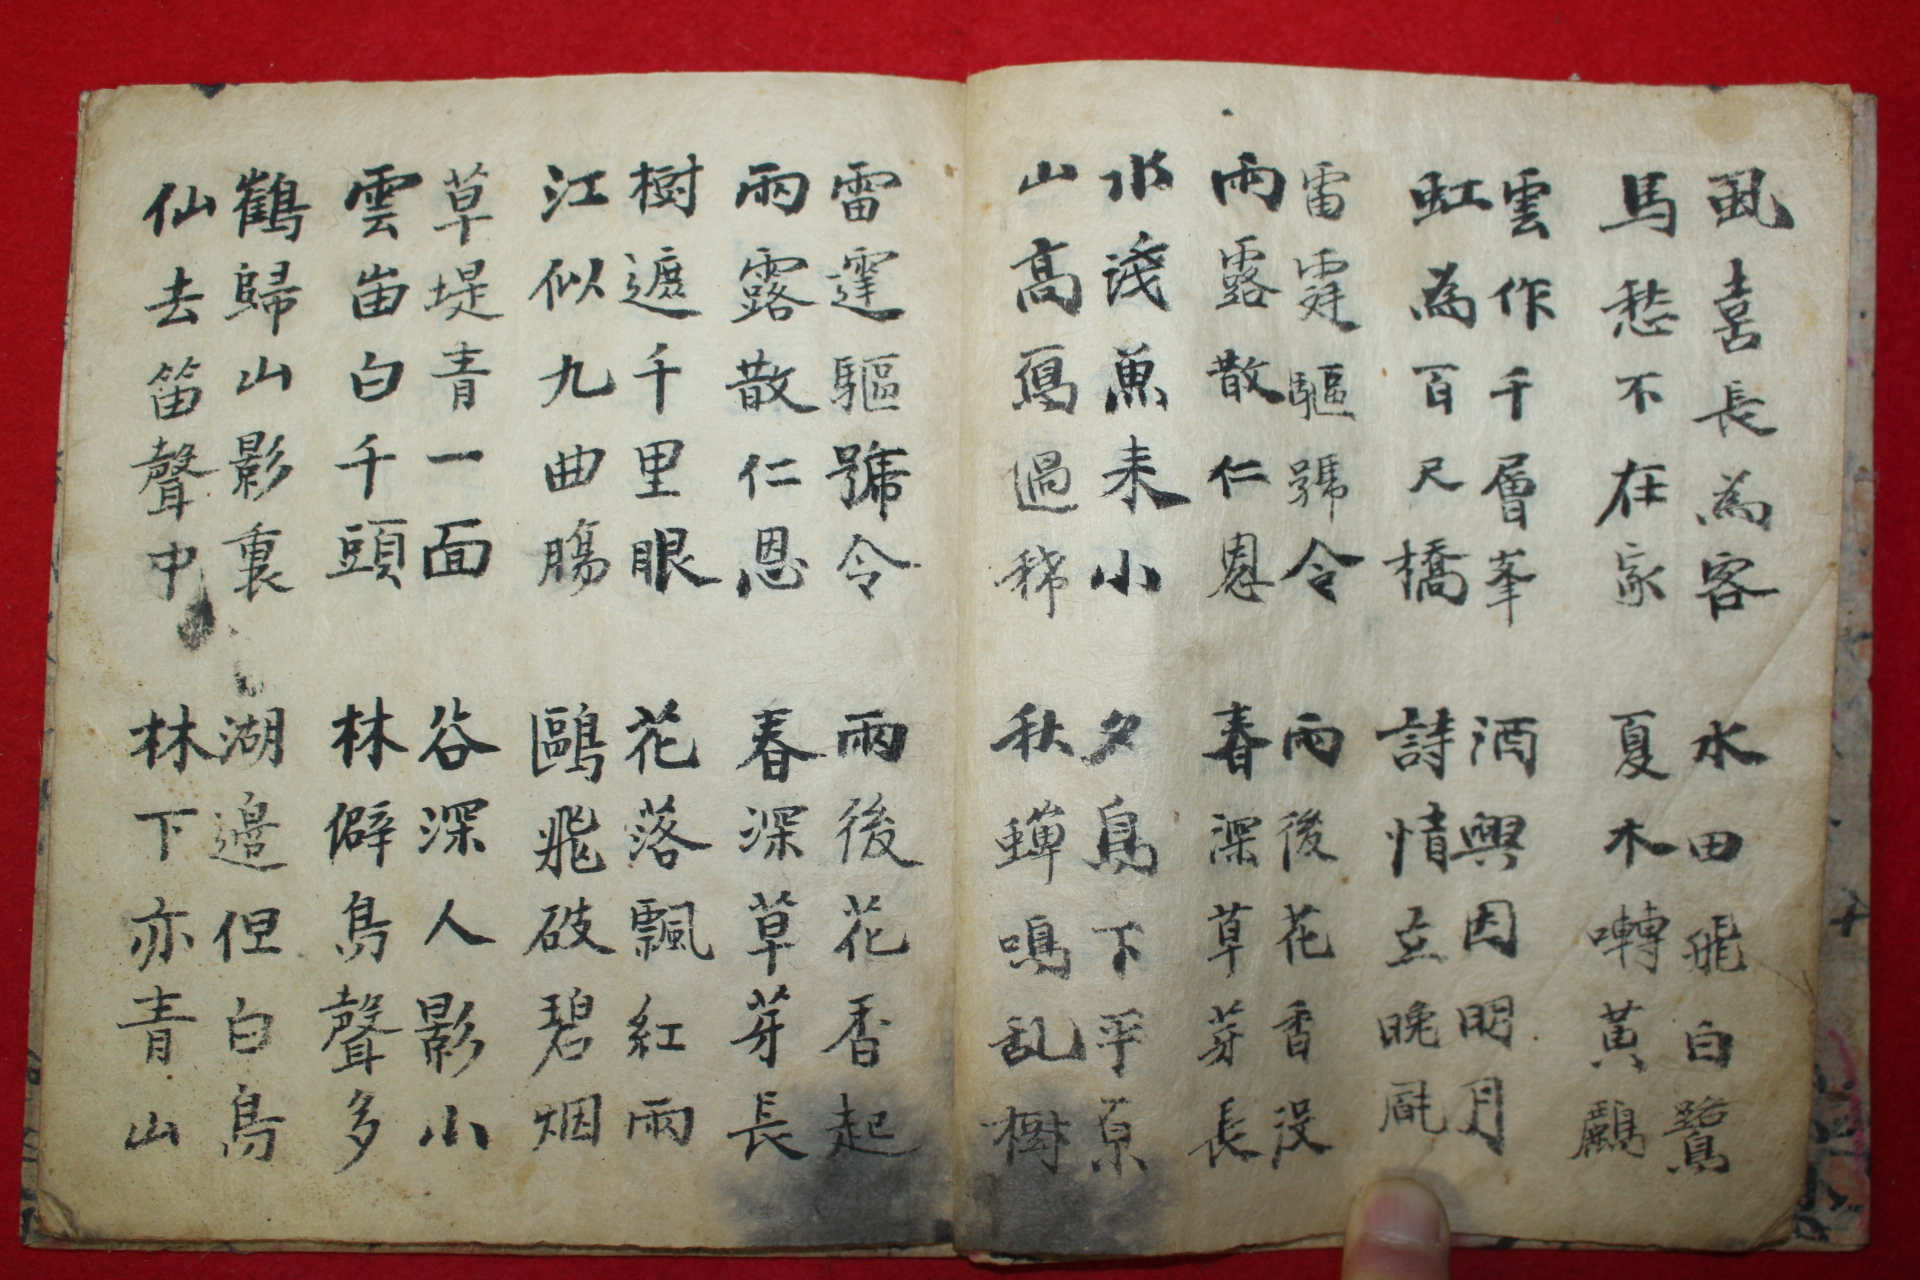 虱喜長為客
馬愁不在家
雲作千層峯
虹為百尺橋
雷霆驅號令
雨露散仁恩
水淺魚未小
山高鳥過稀
水田飛白鷺
夏木囀黃鸝
酒興因明月
詩情立晚風
雨後花香没
春深草芽長
夕鳥下平原
秋蟬鳴乱樹
雷霆驅號令
雨露散仁恩
樹遮千里眼
江似九曲腸
草堤青一面
雲峀白千頭
鶴歸山影裏
仙去笛聲中
雨後花香起
春深草芽長
花落飄紅雨
鷗飛破碧烟
谷深人影小
林僻鳥聲多
湖邊但白鳥
林下亦青山